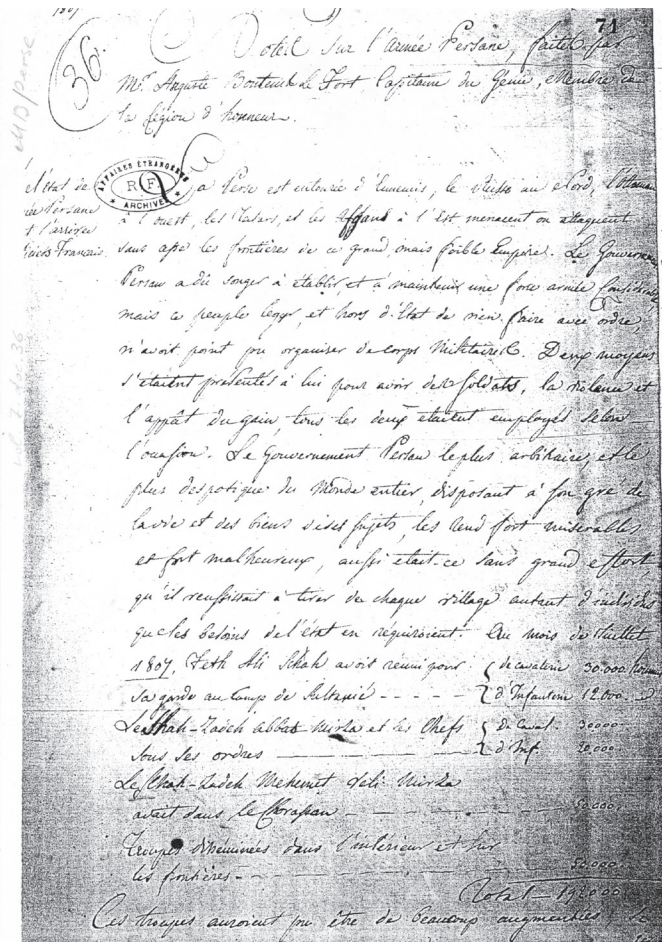 1807
71
36.
Notes sur l'Armée Persane, faites par
Mr. Auguste Bontems Le Fort Capitaine du Génie, Membre de
la Légion d'honneur.
AFFAIRES ETRANGERES
R F
ARCHIVES
MD/perse
l'état de
Persane
t l'arrivée
Français
La Perse est entourée d'Ennemis, le Russe au Nord, l'Ottoman
à l'ouest, les Tatars, et les Afgans à l'Est menacent ou attaquent
sans cesse les frontières de ce grand, mais foible Empire. Le Gouvernem
Persan a dû songer à établir et à maintenir une force armée Considérable,
mais ce peuple leger, et hors d'Etat de rien faire avec ordre,
n'avoit point pu organiser de corps Militaires. Deux moyens
s'étaient présentés à lui pour avoir des Soldats, la violence et
l'appât du gain tous les deux etaient employés selon
l'occasion. Le Gouvernement Persan le plus arbitraire, et le
plus despotique du Monde entier, disposant à son gré de
la vie et des biens de ses sujets, les rend fort miserables
et fort malheureux, aussi etait-ce sans grand effort
qu'il reussissait à tirer de chaque village autant d'individus
que les besoins de l'état en réquiroient. Au mois de Juillet
1807, Feth Ali Schah avoit réuni pour { de cavalerie 30.000 hommes
sa garde au Camp de Sultanié - - - - { d'Infanterie 12.000 - d
Le Shah-Zadeh Abbas Mirza et les Chefs { de Caval. 30000
sous ses ordres { d'Inf. 20,000
Le Chah-Zadeh Mehemet Veli Mirza
avait dans le Chorassan - 50.000.
Troupes disseminées dans l'intérieur et sur
les frontières - 50.000.
Total - 192000
Ces troupes auroient pu être de beaucoup augmentées,